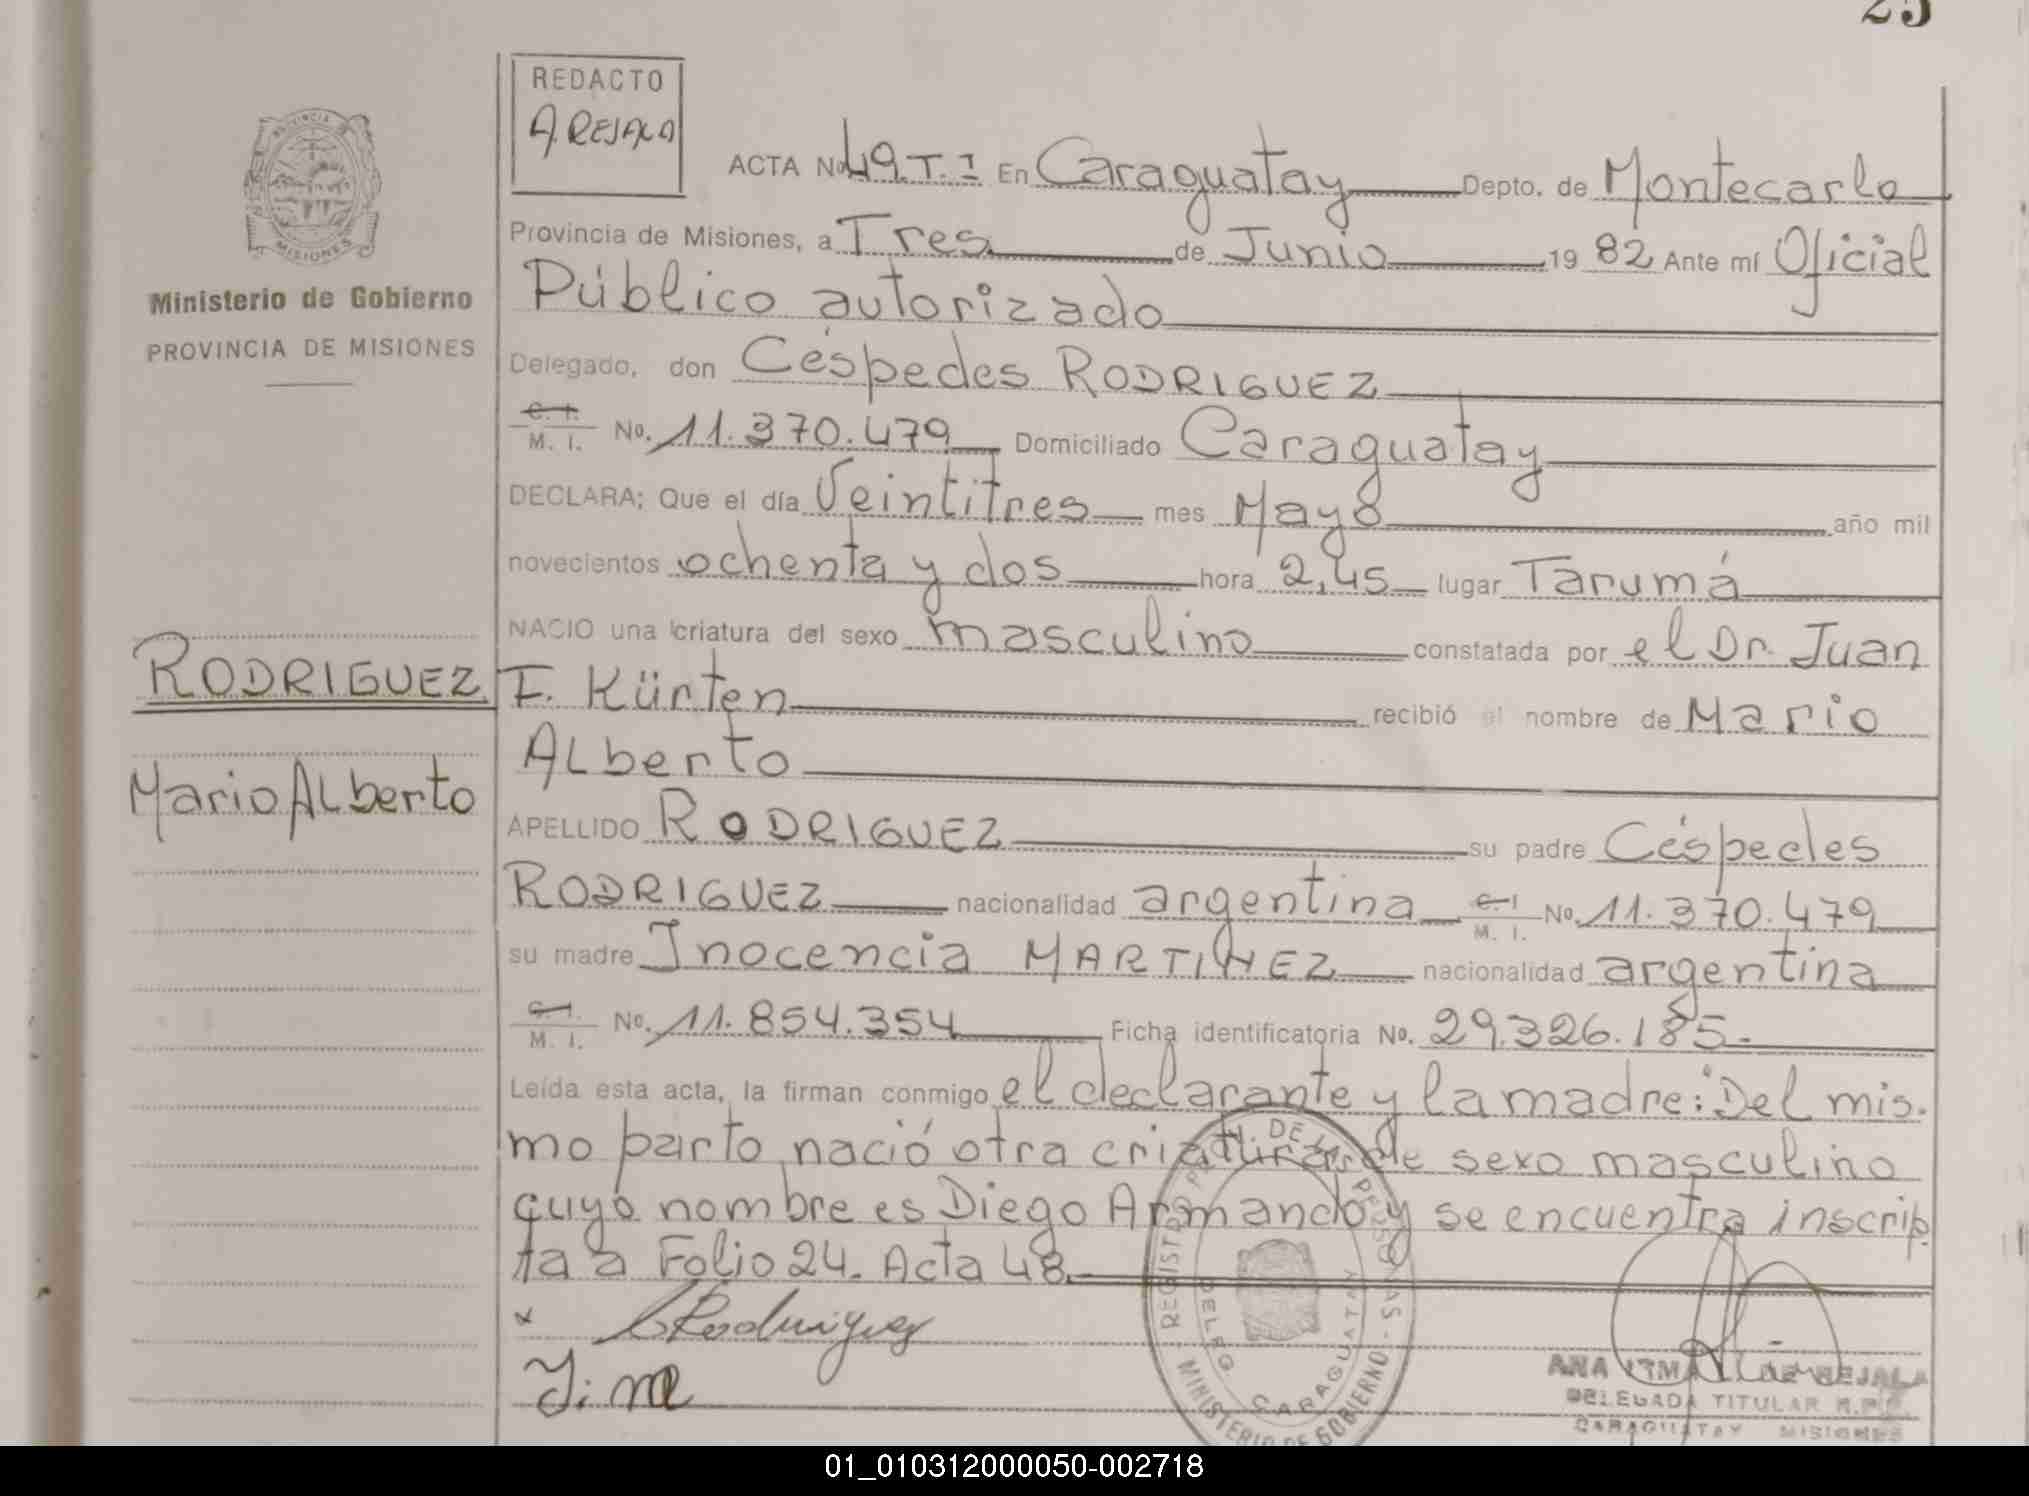 25
REDACTO
A. REJALA
PROVINCIA DE
MISIONES
Ministerio de Gobierno
PROVINCIA DE MISIONES
ACTA No 49.T.I En Caraguatay Depto. de Montecarlo
Provincia de Misiones, a Tres de Junio 1982 Ante mí Oficial
Público autorizado
Delegado, don Céspedes RODRIGUEZ
C. I.
M. I. No. 11.370.479 Domiciliado Caraguatay
DECLARA; Que el día Veintitres mes Mayo año mil
novecientos ochenta y dos hora 2,45 lugar Tarumá
NACIO una criatura del sexo masculino constatada por el Dr. Juan
RODRIGUEZ
F. Kürten recibió el nombre de Mario
Alberto
Mario Alberto
APELLIDO RODRIGUEZ su padre Céspedes
RODRIGUEZ nacionalidad argentina C. I.
M. I. No. 11.370.479
su madre Inocencia MARTINEZ nacionalidad argentina
C. I.
M. I. No. 11.854.354 Ficha identificatoria No. 29.326.185.-
Leída esta acta, la firman conmigo el declarante y la madre: Del mis-
mo parto nació otra criatura de sexo masculino
cuyo nombre es Diego Armando y se encuentra inscrip
ta a Folio 24. Acta 48.-
x CRodriguez
J. m
REGISTRO DE LAS PERSONAS - MINISTERIO DE GOBIERNO
DELEG. CARAGUATAY
ANA DE REJALA
DELEGADA TITULAR R.P.
CARAGUATAY MISIONES
01_010312000050-002718